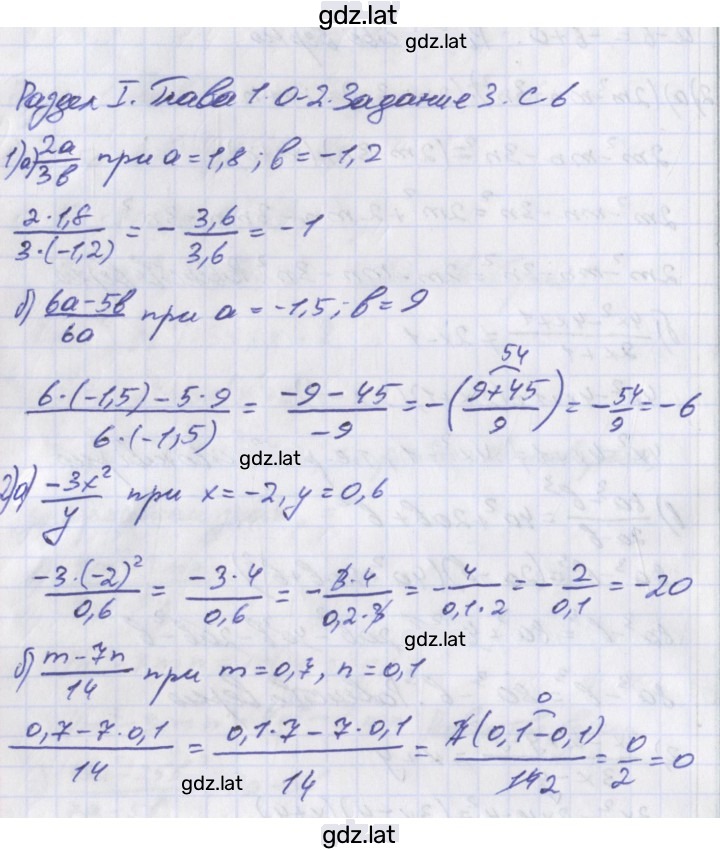 gdz.lat
Раздел I. Глава 1. 0-2. Задание 3. С. 6
1) а) 2a/3в при a = 1,8; в = -1,2
2·1,8/3·(-1,2) = - 3,6/3,6 = -1
б) 6a-5в/6a при a = -1,5; в = 9
54
6·(-1,5)-5·9/6·(-1,5) = -9-45/-9 = -(9+45/9) = -54/9 = -6
gdz.lat
2) а) -3x²/y при x = -2, y = 0,6
-3·(-2)²/0,6 = -3·4/0,6 = - 3·4/0,2·3 = - 4/0,1·2 = - 2/0,1 = -20
б) m-7n/14 при m = 0,7, n = 0,1
0
0,7-7·0,1/14 = 0,1·7-7·0,1/14 = 7(0,1-0,1)/14 2 = 0/2 = 0
gdz.lat
gdz.lat